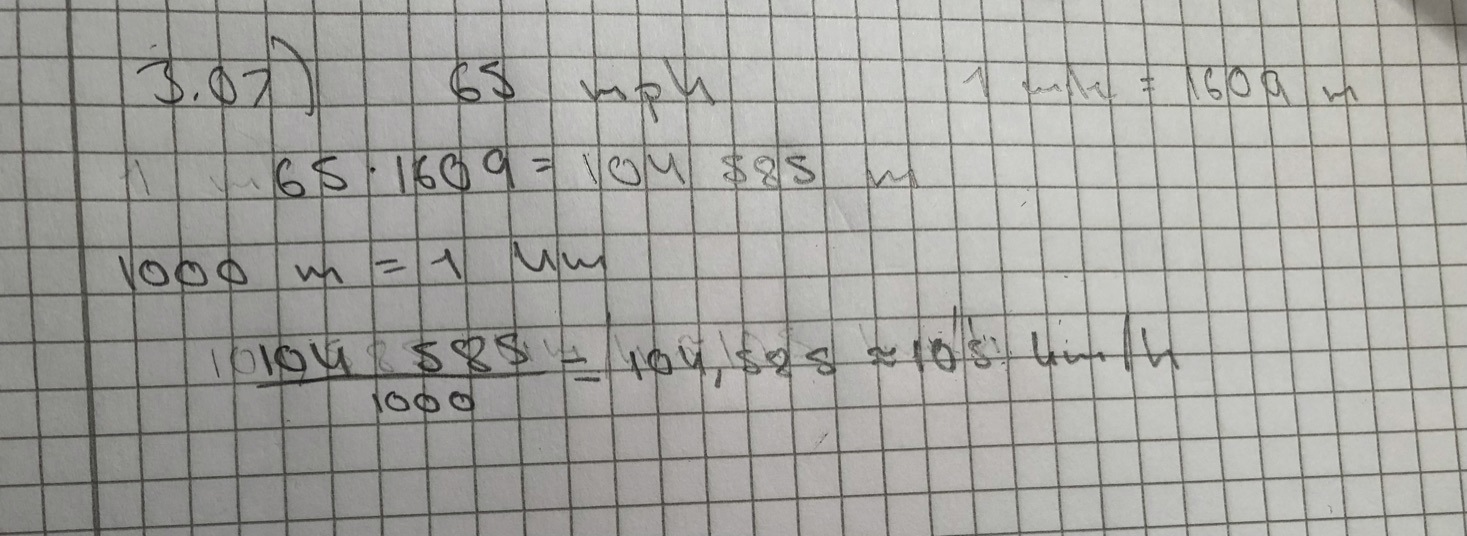 3.07) 65 mph 1 mile = 1609 m
65 · 1609 = 104 585 m
1000 m = 1 km
104 585 / 1000 = 104,585 ≈ 105 km/h